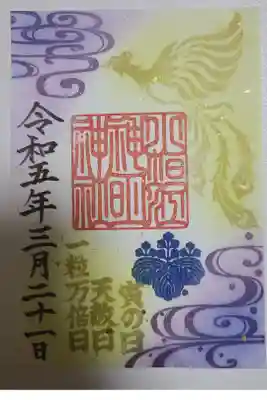 神明
神社
寅の日
天赦日
一粒万倍日
令和五年三月二十一日